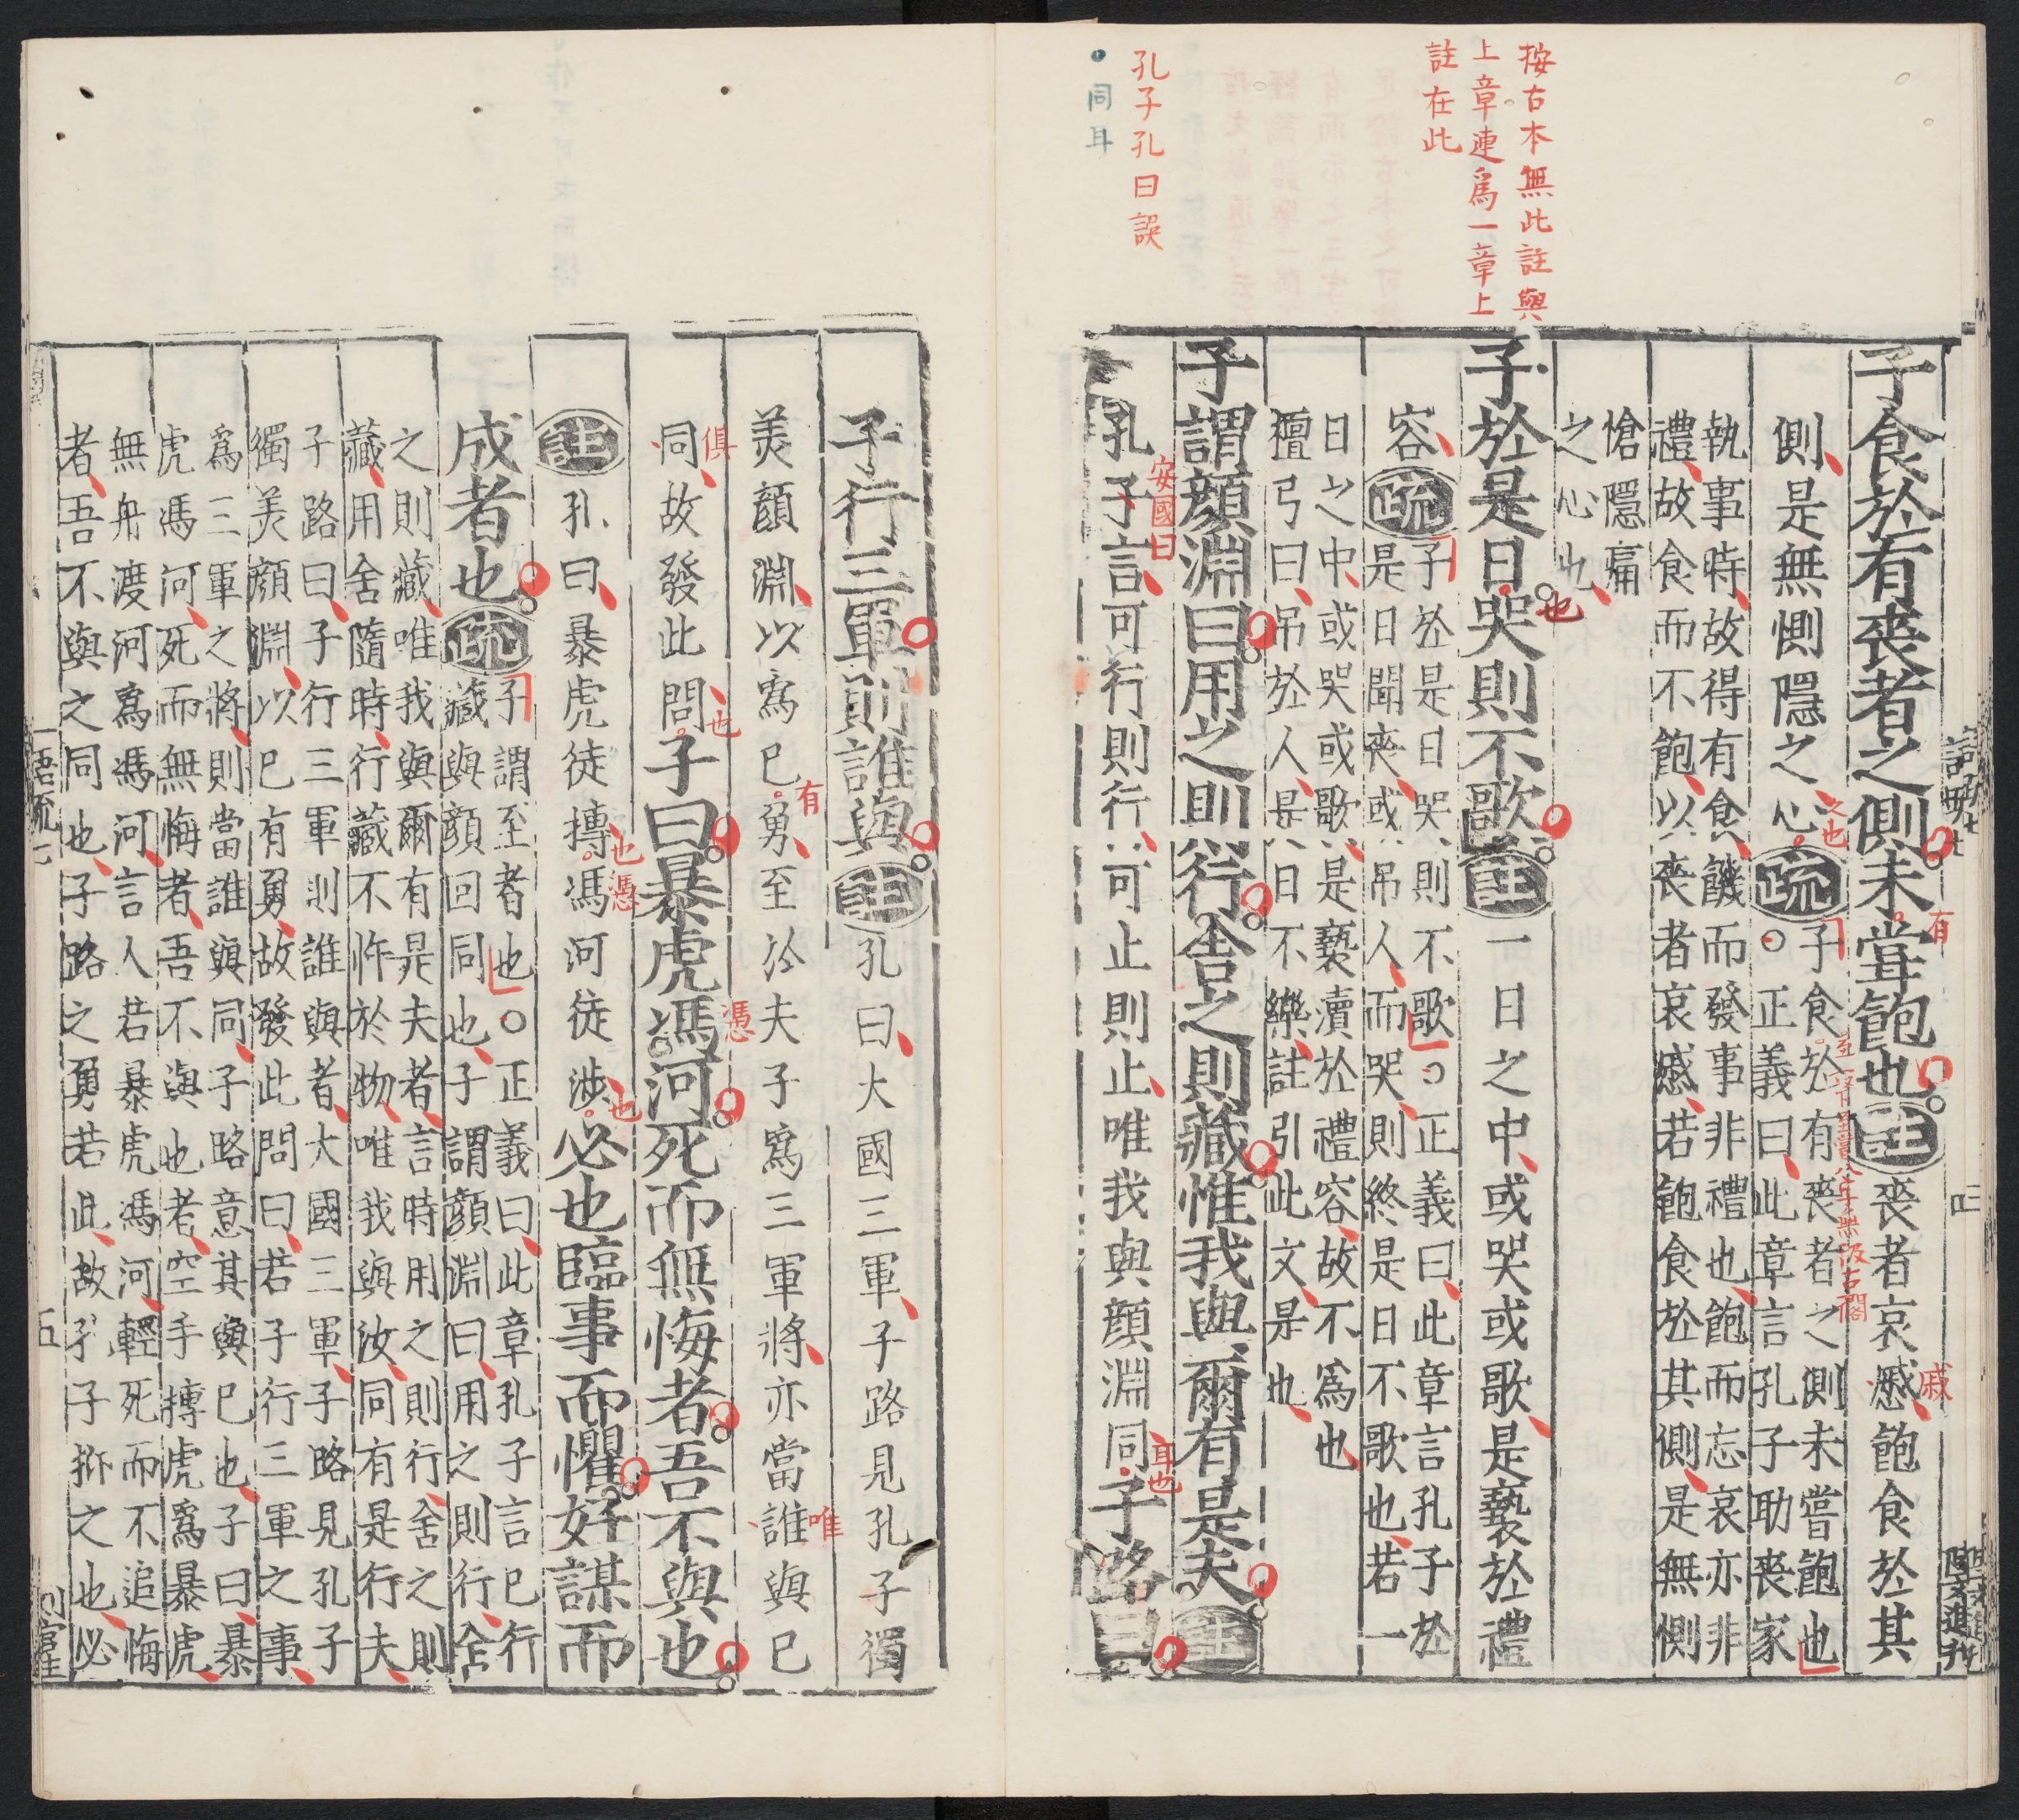 按古本無此註與
上章連爲一章上
註在此
孔子孔曰誤
同耳
子食於有喪者之側未嘗飽也註喪者哀慼飽食於其
側是無惻隱之心疏子食於有喪者之側未嘗飽也
○正義曰此章言孔子助喪家
執事時故得有食饑而發事非禮也飽而忘哀亦非
禮故食而不飽以喪者哀慼若飽食於其側是無惻
愴隱痛
之心也
子於是日哭則不歌註一日之中或哭或歌是褻於禮
容疏子於是日哭則不歌○正義曰此章言孔子於
是日聞喪或吊人而哭則終是日不歌也若一
日之中或哭或歌是褻瀆於禮容故不爲也
檀弓曰吊於人是日不樂註引此文是也
子謂顔淵曰用之則行舍之則藏惟我與爾有是夫註
孔子言可行則行可止則止唯我與顔淵同子路曰
子行三軍則誰與註孔曰大國三軍子路見孔子獨
美顔淵以爲己勇至於夫子爲三軍將亦當誰與己
同故發此問子曰暴虎馮河死而無悔者吾不與也
註孔曰暴虎徒搏馮河徒涉必也臨事而懼好謀而
成者也疏子謂至者也○正義曰此章孔子言已行
藏與顔回同也子謂顔淵曰用之則行舍
之則藏唯我與爾有是夫者言時用之則行舍之則
藏用舍隨時行藏不忤於物唯我與汝同有是行夫
子路曰子行三軍則誰與者大國三軍子路見孔子
獨美顔淵以已有勇故發此問曰若子行三軍之事
爲三軍之將則當誰與同子路意其與已也子曰暴
虎馮河死而無悔者吾不與也者空手搏虎爲暴虎
無舟渡河爲馮河言人若暴虎馮河輕死而不追悔
者吾不與之同也子路之勇若此故孔子抑之也必
有
文也
戚
也
安國曰
耳也
有
唯
俱
也
憑
也憑
也
五